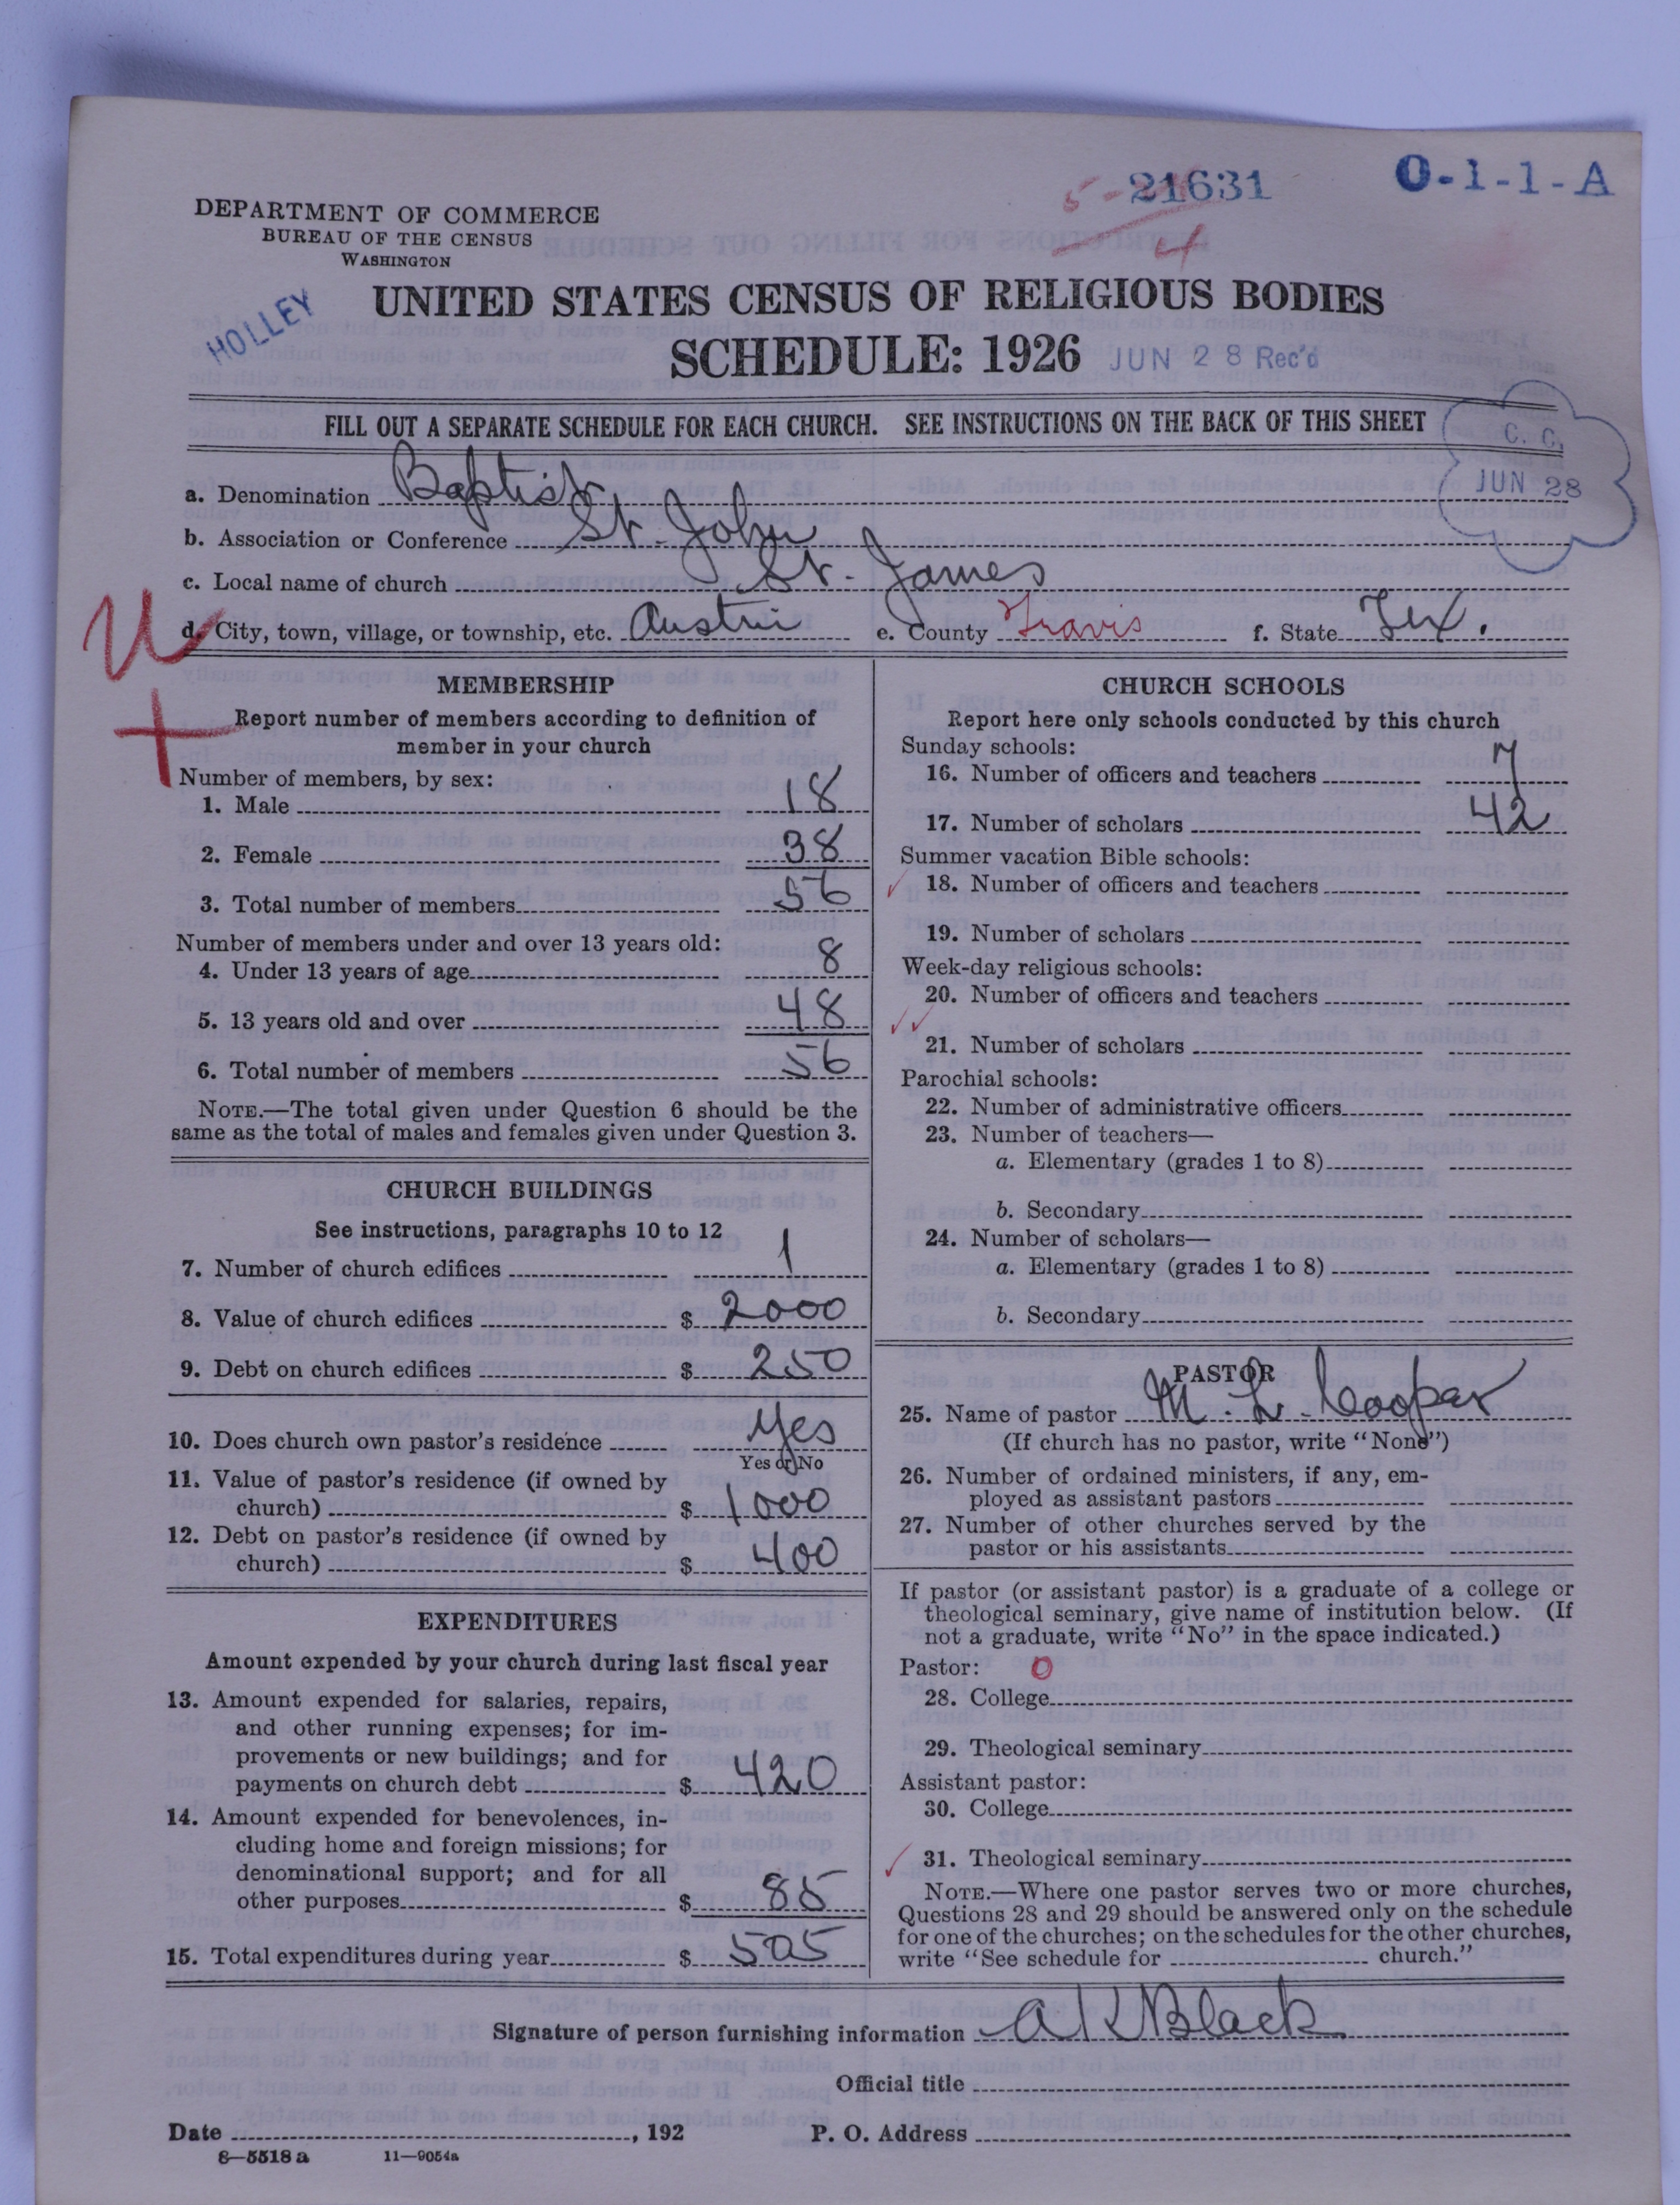 5- 21631
4
O-1-1-A
DEPARTMENT OF COMMERCE
BUREAU OF THE CENSUS
WASHINGTON
HOLLEY
UNITED STATES CENSUS OF RELIGIOUS BODIES
SCHEDULE: 1926 JUN 28 Rec'd
FILL OUT A SEPARATE SCHEDULE FOR EACH CHURCH. SEE INSTRUCTIONS ON THE BACK OF THIS SHEET
C. C.
JUN 28
a. Denomination Baptist
b. Association or Conference St. John
c. Local name of church St. James
d. City, town, village, or township, etc. Austin e. County Travis f. State Tex.
U
+
MEMBERSHIP
Report number of members according to definition of
member in your church
Number of members, by sex:
1. Male 18
2. Female 38
3. Total number of members 56
Number of members under and over 13 years old:
4. Under 13 years of age 8
5. 13 years old and over 48
6. Total number of members 56
NOTE.—The total given under Question 6 should be the
same as the total of males and females given under Question 3.
CHURCH BUILDINGS
See instructions, paragraphs 10 to 12
7. Number of church edifices 1
8. Value of church edifices $ 2000
9. Debt on church edifices $ 250
10. Does church own pastor's residence Yes
Yes or No
11. Value of pastor's residence (if owned by
church) $ 1000
12. Debt on pastor's residence (if owned by
church) $ 400
EXPENDITURES
Amount expended by your church during last fiscal year
13. Amount expended for salaries, repairs,
and other running expenses; for im-
provements or new buildings; and for
payments on church debt $ 420
14. Amount expended for benevolences, in-
cluding home and foreign missions; for
denominational support; and for all
other purposes $ 85
15. Total expenditures during year $ 505
CHURCH SCHOOLS
Report here only schools conducted by this church
Sunday schools:
16. Number of officers and teachers 7
17. Number of scholars 42
Summer vacation Bible schools:
18. Number of officers and teachers
19. Number of scholars
Week-day religious schools:
20. Number of officers and teachers
21. Number of scholars
Parochial schools:
22. Number of administrative officers
23. Number of teachers—
a. Elementary (grades 1 to 8)
b. Secondary
24. Number of scholars—
a. Elementary (grades 1 to 8)
b. Secondary
PASTOR
25. Name of pastor M. L. Cooper
(If church has no pastor, write "None")
26. Number of ordained ministers, if any, em-
ployed as assistant pastors
27. Number of other churches served by the
pastor or his assistants
If pastor (or assistant pastor) is a graduate of a college or
theological seminary, give name of institution below. (If
not a graduate, write "No" in the space indicated.)
Pastor: 0
28. College
29. Theological seminary
Assistant pastor:
30. College
31. Theological seminary
NOTE.—Where one pastor serves two or more churches,
Questions 28 and 29 should be answered only on the schedule
for one of the churches; on the schedules for the other churches,
write "See schedule for church."
Signature of person furnishing information A K Black
Official title
Date , 192 P. O. Address
8—5518 a 11—9054a